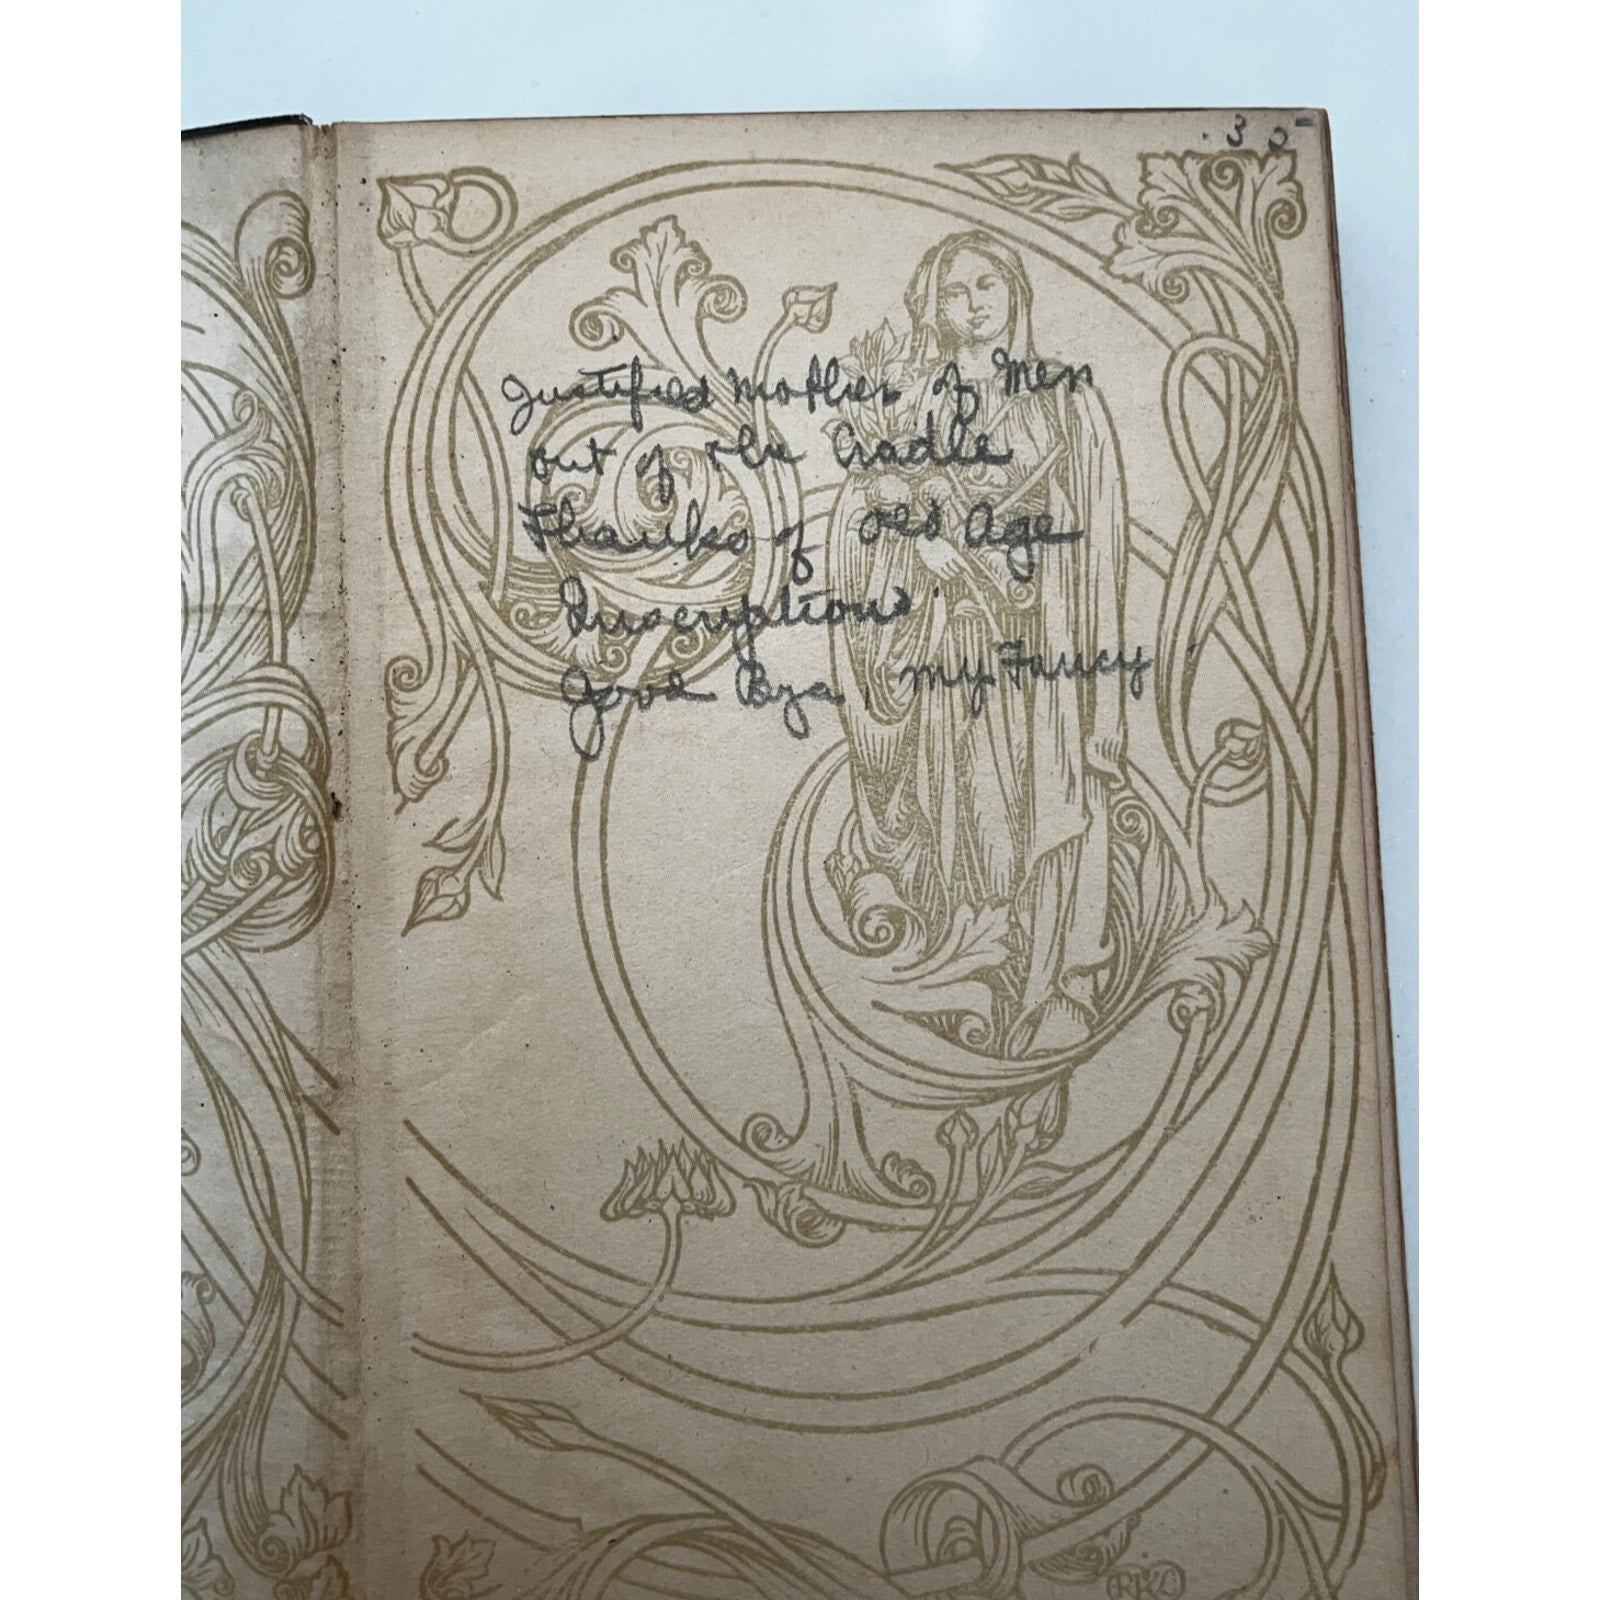 .30
Justified Mother of Men
out of the Cradle
Thanks of Old Age
Inscriptions
Good Bye, my Fancy